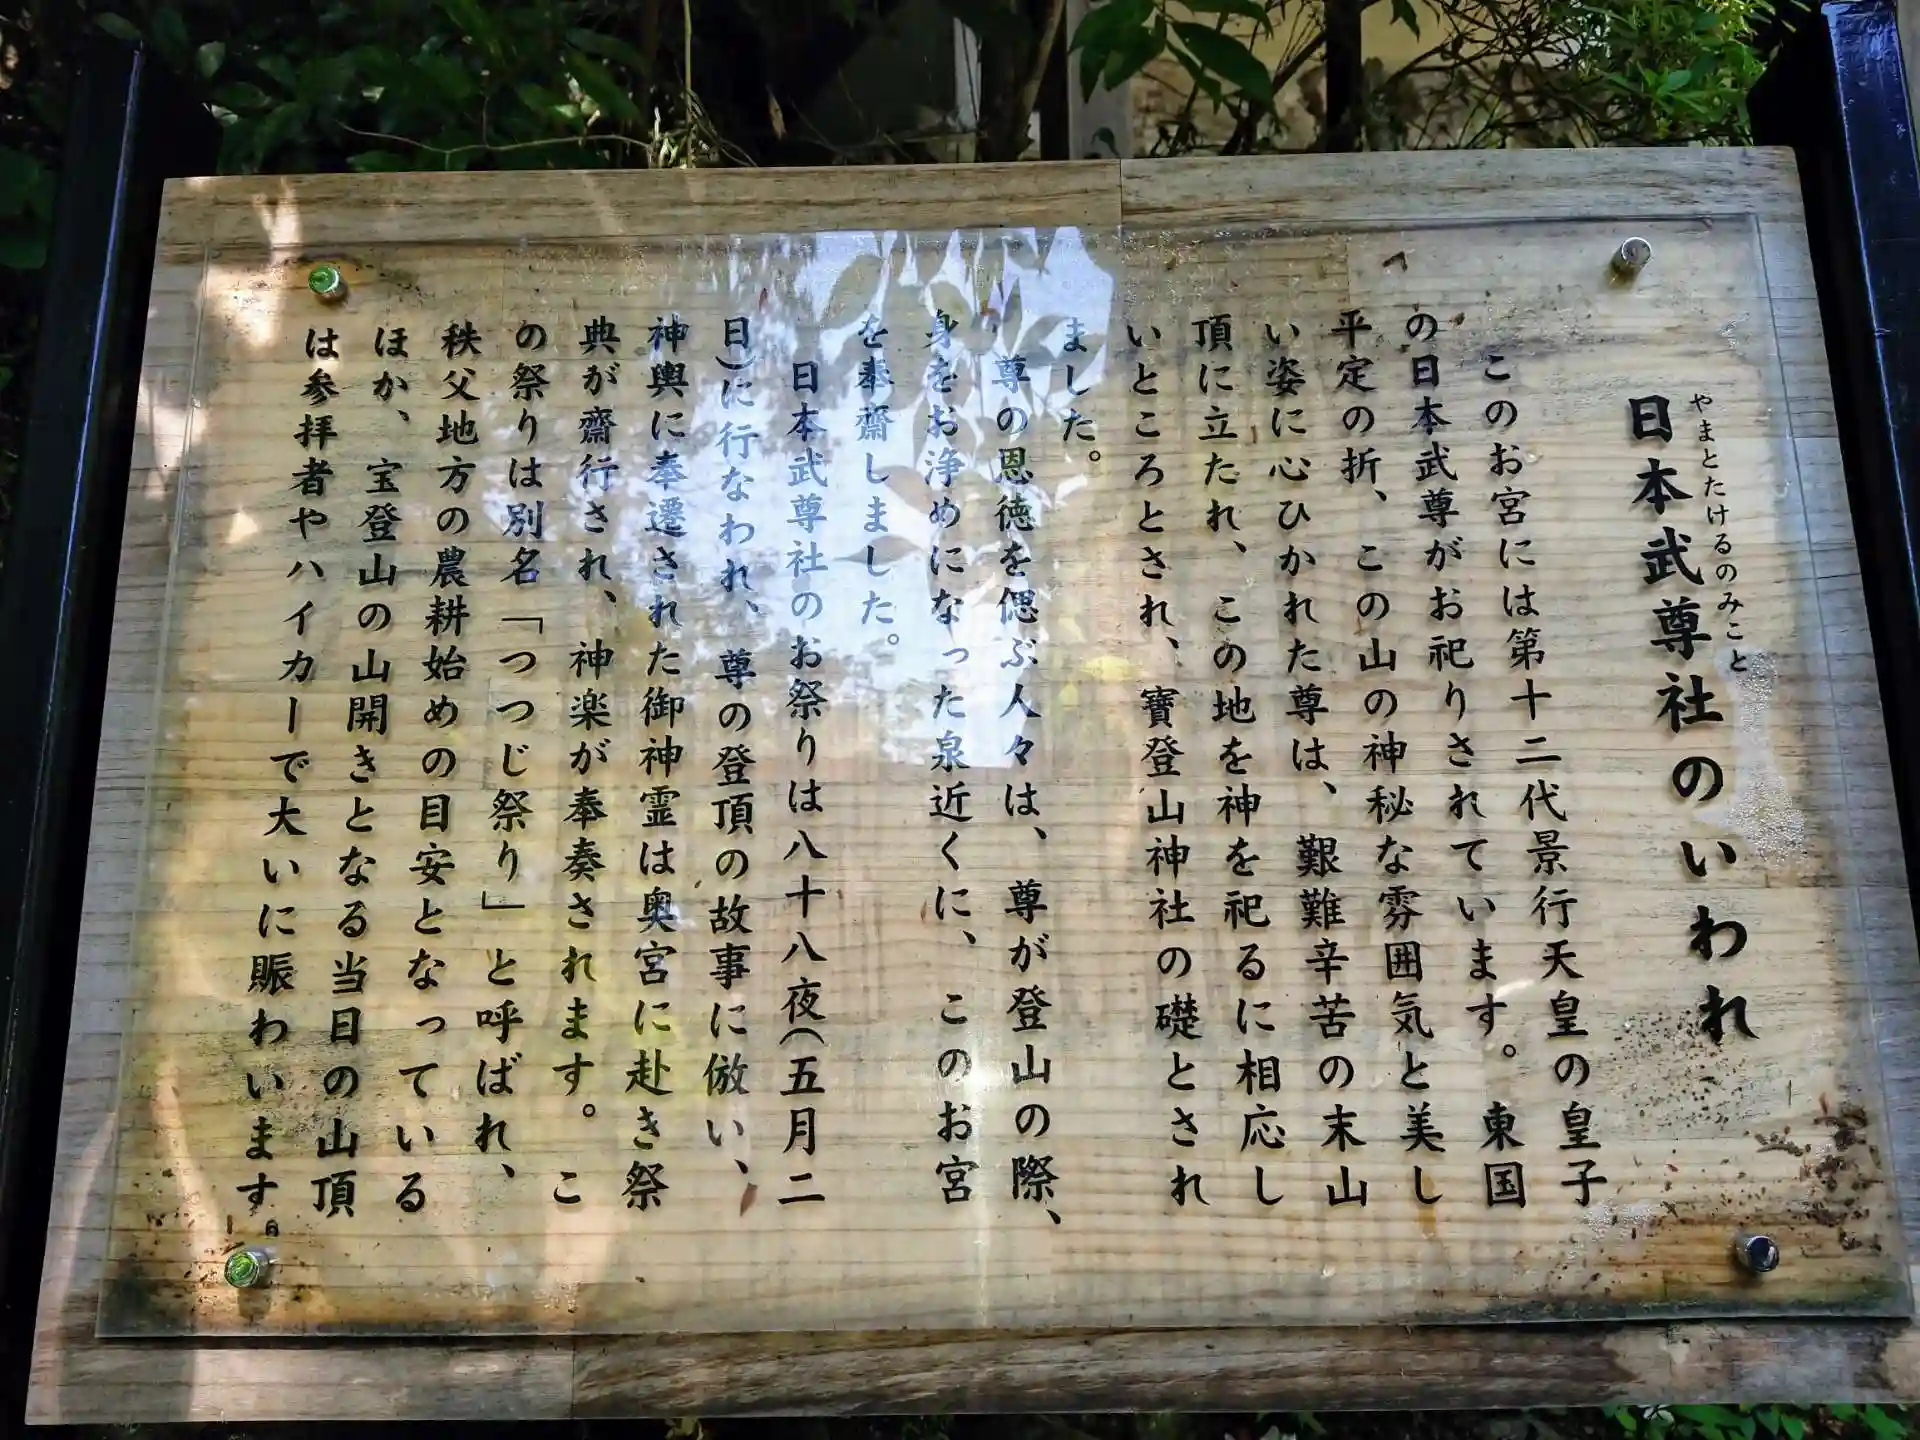 日本武尊社のいわれ
やまとたけるのみこと
このお宮には第十二代景行天皇の皇子
の日本武尊がお祀りされています。東国
平定の折、この山の神秘な雰囲気と美し
い姿に心ひかれた尊は、艱難辛苦の末山
頂に立たれ、この地を神を祀るに相応し
いところとされ、寶登山神社の礎とされ
ました。
尊の恩徳を偲ぶ人々は、尊が登山の際、
身をお浄めになった泉近くに、このお宮
を奉齋しました。
日本武尊社のお祭りは八十八夜(五月二
日)に行なわれ、尊の登頂の故事に倣い、
神輿に奉遷された御神霊は奥宮に赴き祭
典が齋行され、神楽が奉奏されます。こ
の祭りは別名「つつじ祭り」と呼ばれ、
秩父地方の農耕始めの目安となっている
ほか、宝登山の山開きとなる当日の山頂
は参拝者やハイカーで大いに賑わいます。